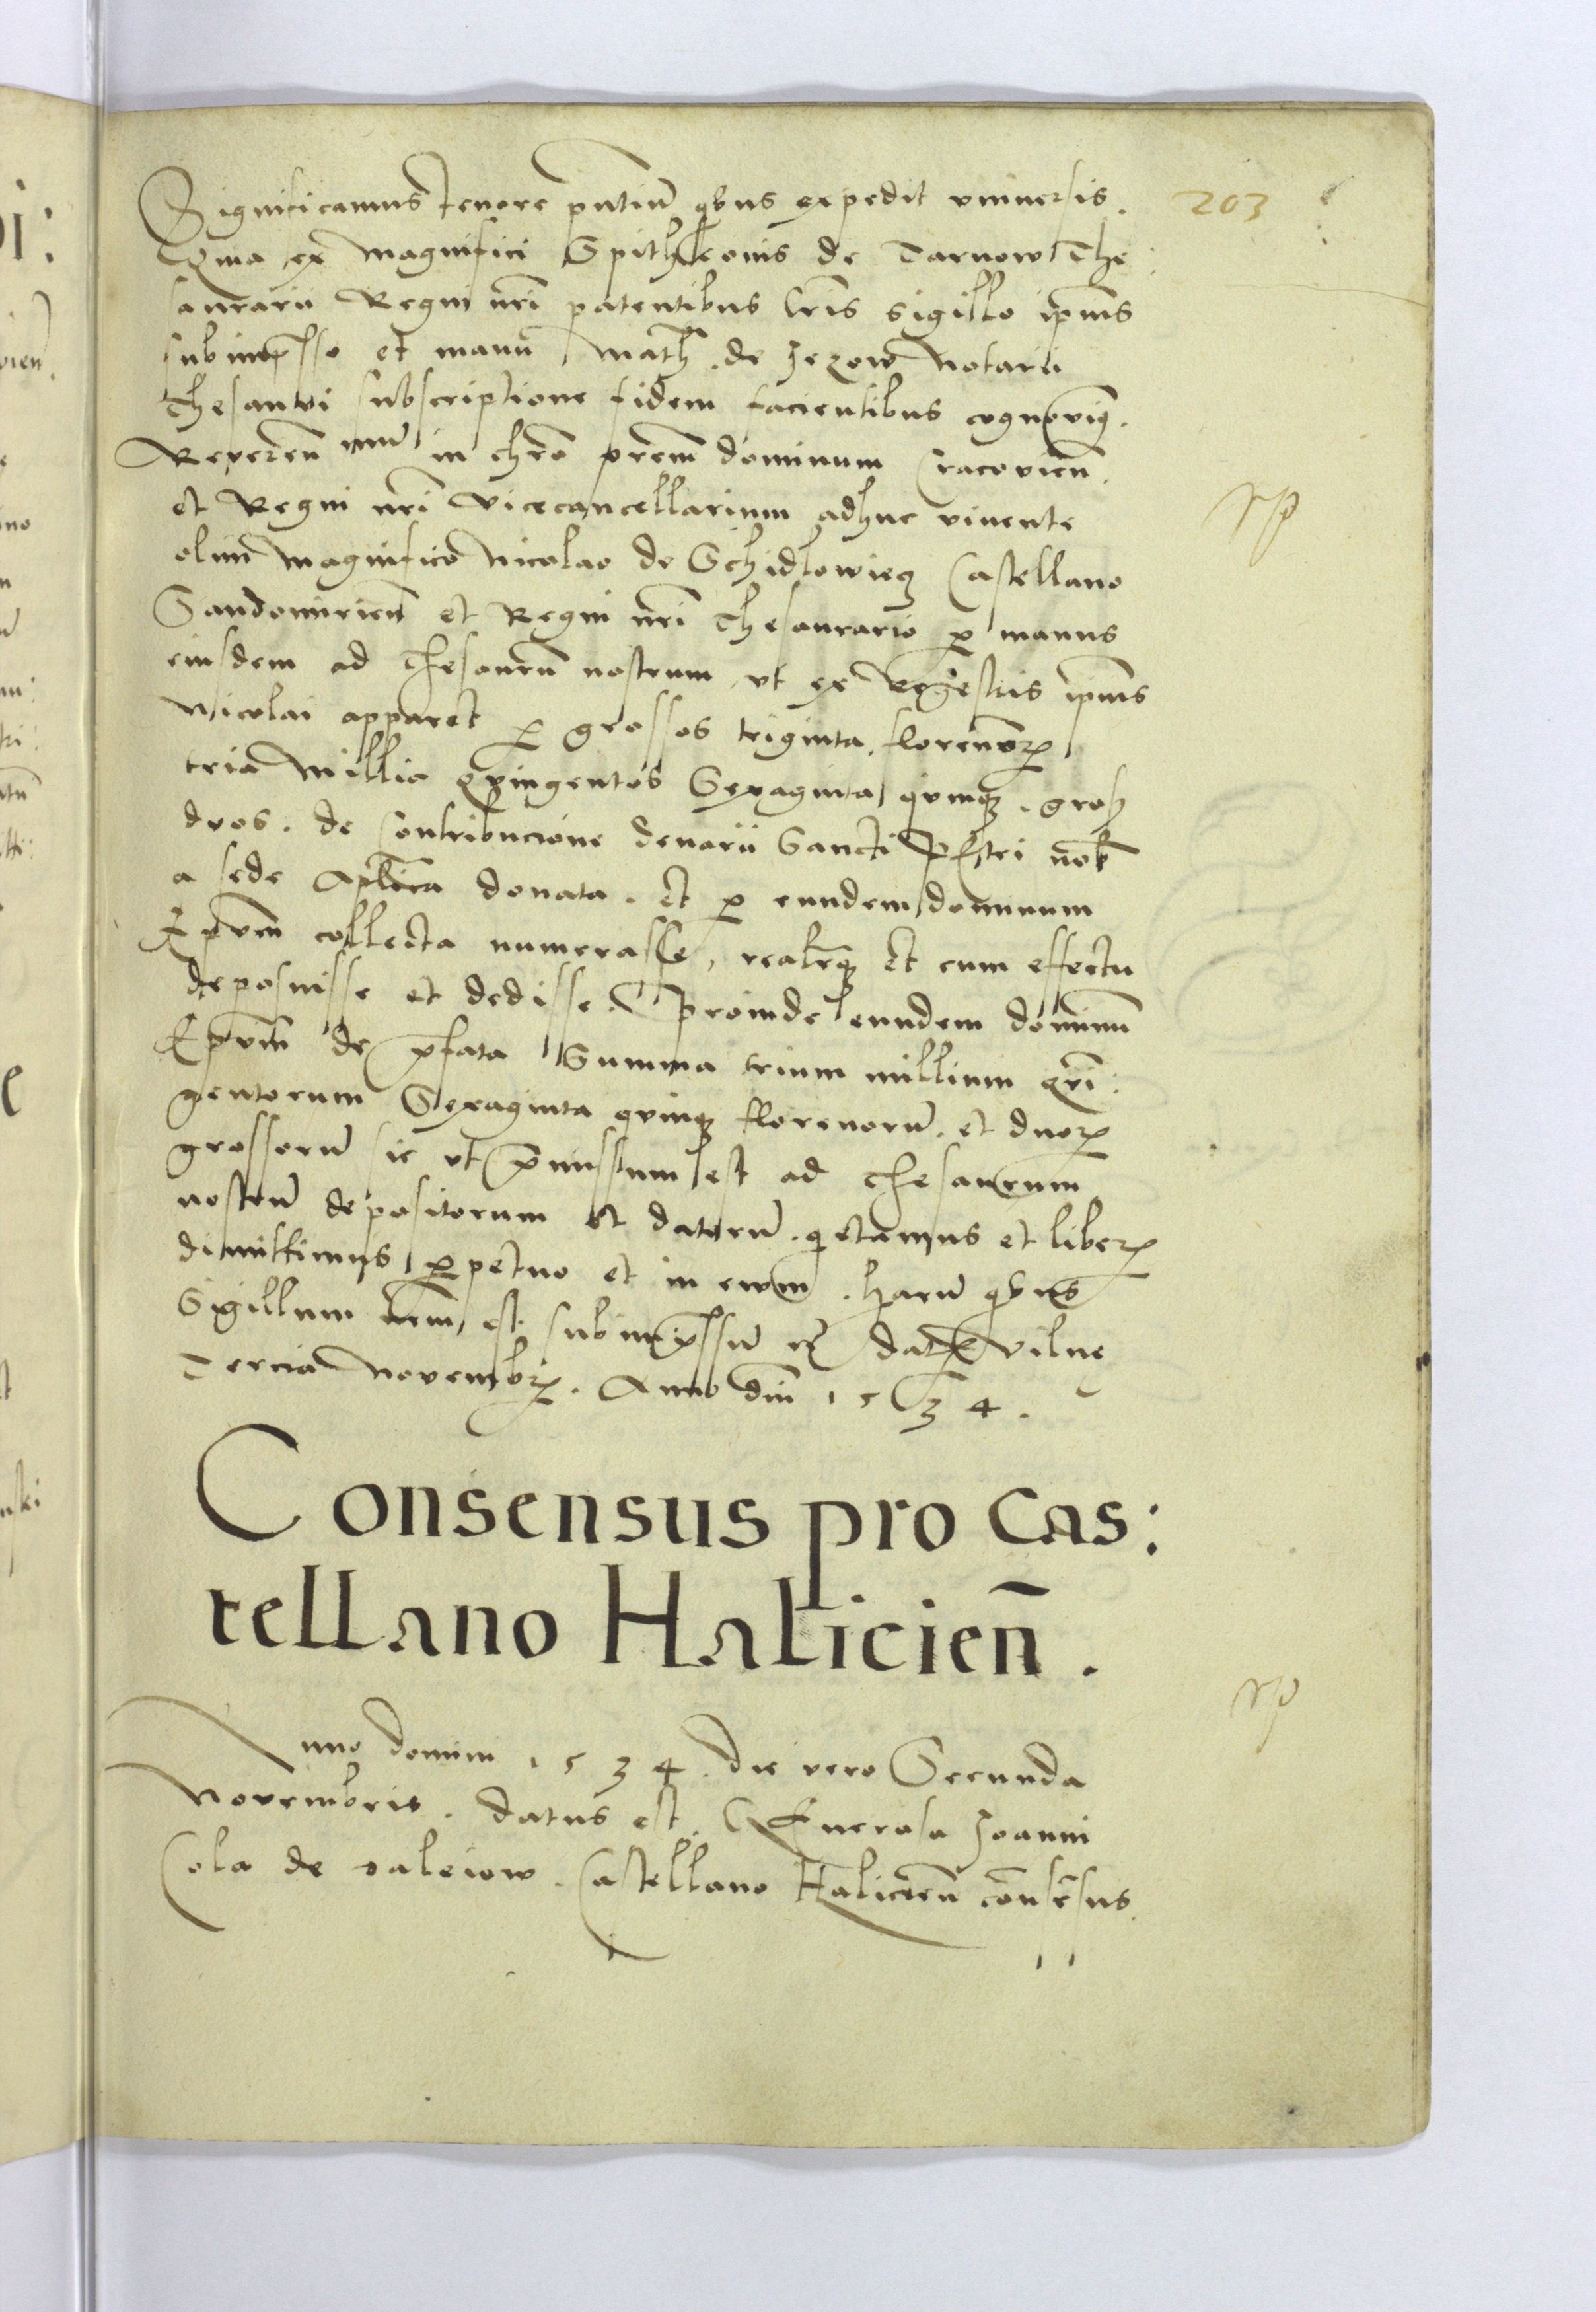 Significamus tenore pntiũ qbus expedit vniuersis.
203
Quia ex magnifici Spithkonis de Tarnow The:
saurarii Regni nri patentibus lris sigillo ipius
subimpsso et manu Math. de Jezow Notarii
Thesauri subscriptione fidem facientibus cognouimꝰ.
Reverenmũ in chro prem dominum Cracovien̄.
et Regni nri Vicecancellarium adhuc viuente
olim Magnifico Nicolao de Schidlowiecz Castellano
Sandomirien̄ et Regni nri Thesaurario ꝑ manus
eiusdem ad Thesaurũ nostrum, vt ex Regestris ipius
Nicolai apparet ꝑ grossos triginta, florenorꝝ
tria Millia Quingentos Sexaginta quinqꝫ. gross
duos. de Contribucione denarii Sancti Petri nob
a sede Aplica donata. et ꝑ eundem dominum
Epum collecta numerasse, realrqꝫ et cum effectu
deposuisse et dedisse. Proinde eundem dominũ
Epum de p̄fata Summa trium millium qui:
gentorum Sexaginta quinqꝫ florenorũ. et duorꝝ
grossorũ sic vt p̄missum est ad Thesaurum
nostrũ depositorum et datorũ. quietamus et liberꝝ
dimittimus, ꝑpetuo et in ewm. harũ qbus
Sigillum nrm est subimp̄ssũ Datꝝ Vilne
Tercia Novembrꝝ. Anno dni 1534.
Consensus pro Cas:
tellano Halicien̄.
Anno domini 1534. die vero Secunda
Novembris. datus est. Generoso Joanni
Cola de Daleiow. Castellano Halicien̄ consẽsus.